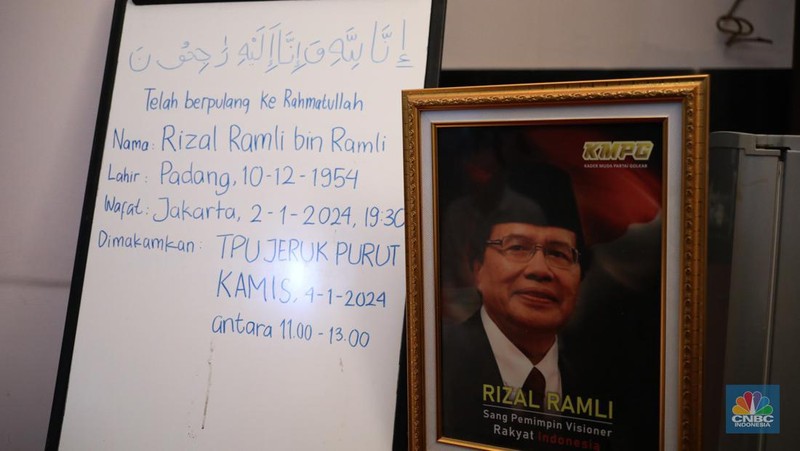 إِنَّا لِلَّٰهِ وَإِنَّا إِلَيْهِ رَاجِعُوْنَ
Telah berpulang ke Rahmatullah
Nama : Rizal Ramli bin Ramli
Lahir : Padang, 10-12-1954
Wafat : Jakarta, 2-1-2024, 19:30
Dimakamkan : TPU JERUK PURUT
KAMIS, 4-1-2024
antara 11.00 - 13.00
KMPG
KADER MUDA PARTAI GOLKAR
RIZAL RAMLI
Sang Pemimpin Visioner
Rakyat Indonesia
CNBC
INDONESIA